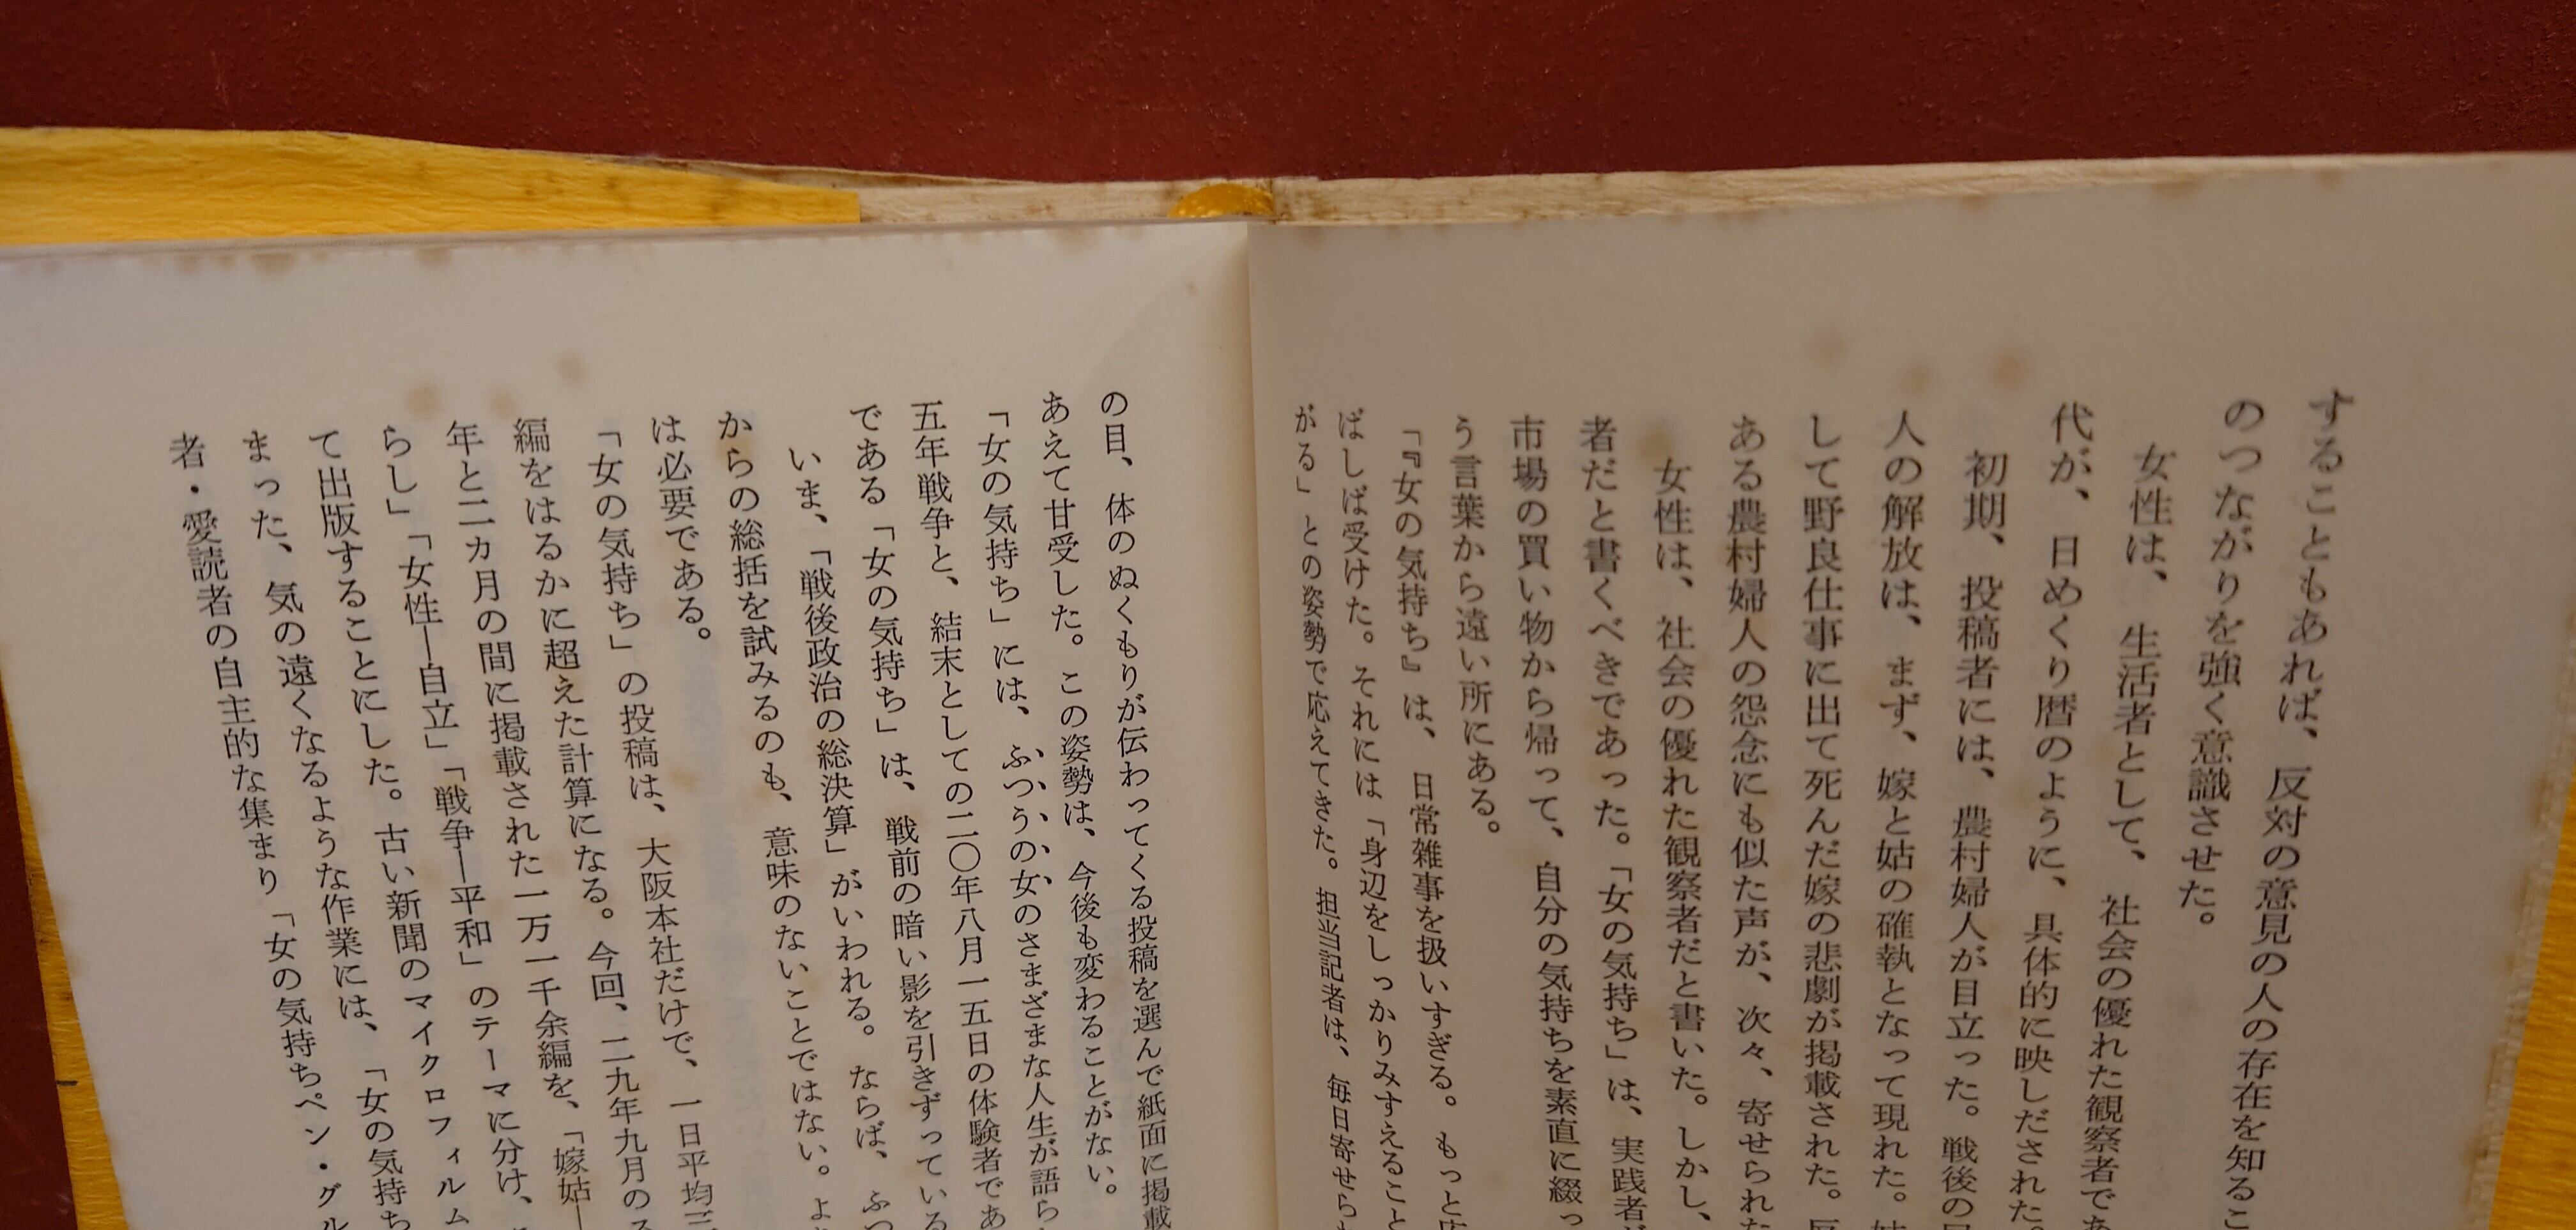 することもあれば、反対の意見の人の存在を知るこ
のつながりを強く意識させた。
女性は、生活者として、社会の優れた観察者であ
代が、日めくり暦のように、具体的に映しだされた。
初期、投稿者には、農村婦人が目立った。戦後の
人の解放は、まず、嫁と姑の確執となって現れた。
して野良仕事に出て死んだ嫁の悲劇が掲載された。
ある農村婦人の怨念にも似た声が、次々、寄せられた
女性は、社会の優れた観察者だと書いた。しかし、
者だと書くべきであった。「女の気持ち」は、実践者が
市場の買い物から帰って、自分の気持ちを素直に綴っ
う言葉から遠い所にある。
「『女の気持ち』は、日常雑事を扱いすぎる。もっと
ばしば受けた。それには「身辺をしっかりみすえること
がる」との姿勢で応えてきた。担当記者は、毎日寄せら
の目、体のぬくもりが伝わってくる投稿を選んで紙面に掲載
あえて甘受した。この姿勢は、今後も変わることがない。
「女の気持ち」には、ふつうの女のさまざまな人生が語ら
五年戦争と、結末としての二〇年八月一五日の体験者であ
である「女の気持ち」は、戦前の暗い影を引きずっている
いま、「戦後政治の総決算」がいわれる。ならば、ふつ
からの総括を試みるのも、意味のないことではない。よ
は必要である。
「女の気持ち」の投稿は、大阪本社だけで、一日平均三
編をはるかに超えた計算になる。今回、二九年九月のス
年と二カ月の間に掲載された一万一千余編を、「嫁姑―
らし」「女性―自立」「戦争―平和」のテーマに分け、
て出版することにした。古い新聞のマイクロフィルム
まった、気の遠くなるような作業には、「女の気持ち
者・愛読者の自主的な集まり「女の気持ちペン・グル